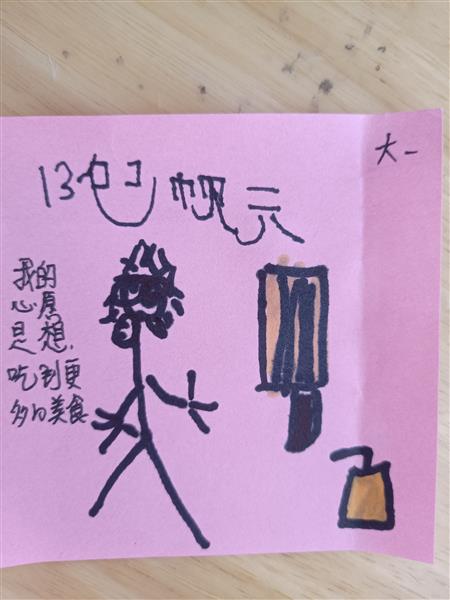 大一
13包帆云
我的
心愿
是想,
吃到更
多的美食